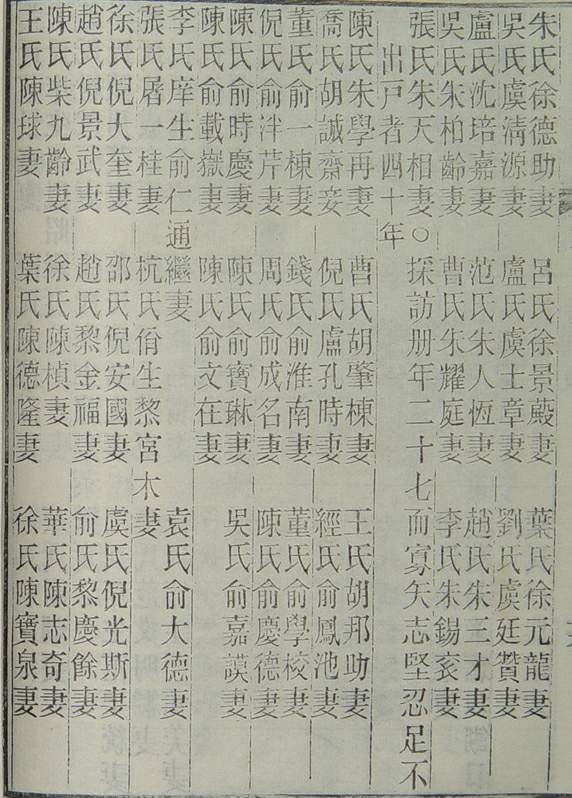 朱氏徐德助妻 呂氏徐景殿妻 葉氏徐元龍妻
吳氏虞清源妻 盧氏虞士章妻 劉氏虞廷贊妻
盧氏沈培嘉妻 范氏朱人恆妻 趙氏朱三才妻
吳氏朱柏齡妻 曹氏朱耀庭妻 李氏朱錫衮妻
張氏朱天相妻○採訪册年二十七而寡矢志堅忍足不
出戸者四十年
陳氏朱學再妻 曹氏胡肇棟妻 王氏胡邦助妻
喬氏胡誠齋妾 倪氏盧孔時妻 經氏俞鳳池妻
董氏俞一棟妻 錢氏俞淮南妻 董氏俞學校妻
倪氏俞泮芹妻 周氏俞成名妻 陳氏俞慶德妻
陳氏俞時慶妻 陳氏俞寶琳妻 吳氏俞嘉謨妻
陳氏俞載嶽妻 陳氏俞文在妻
李氏庠生俞仁通繼妻 袁氏俞大德妻
張氏屠一桂妻 杭氏佾生黎宮木妻
徐氏倪大奎妻 邵氏倪安國妻 虞氏倪光斯妻
趙氏倪景武妻 趙氏黎金福妻 俞氏黎慶餘妻
陳氏柴九齡妻 徐氏陳楨妻 華氏陳志奇妻
王氏陳球妻 葉氏陳德隆妻 徐氏陳寶泉妻